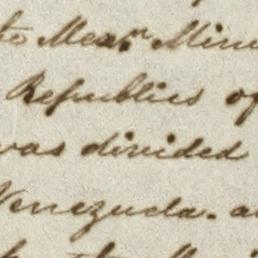 to Mexn Mini
Republics of
was divided
Venezuela. a